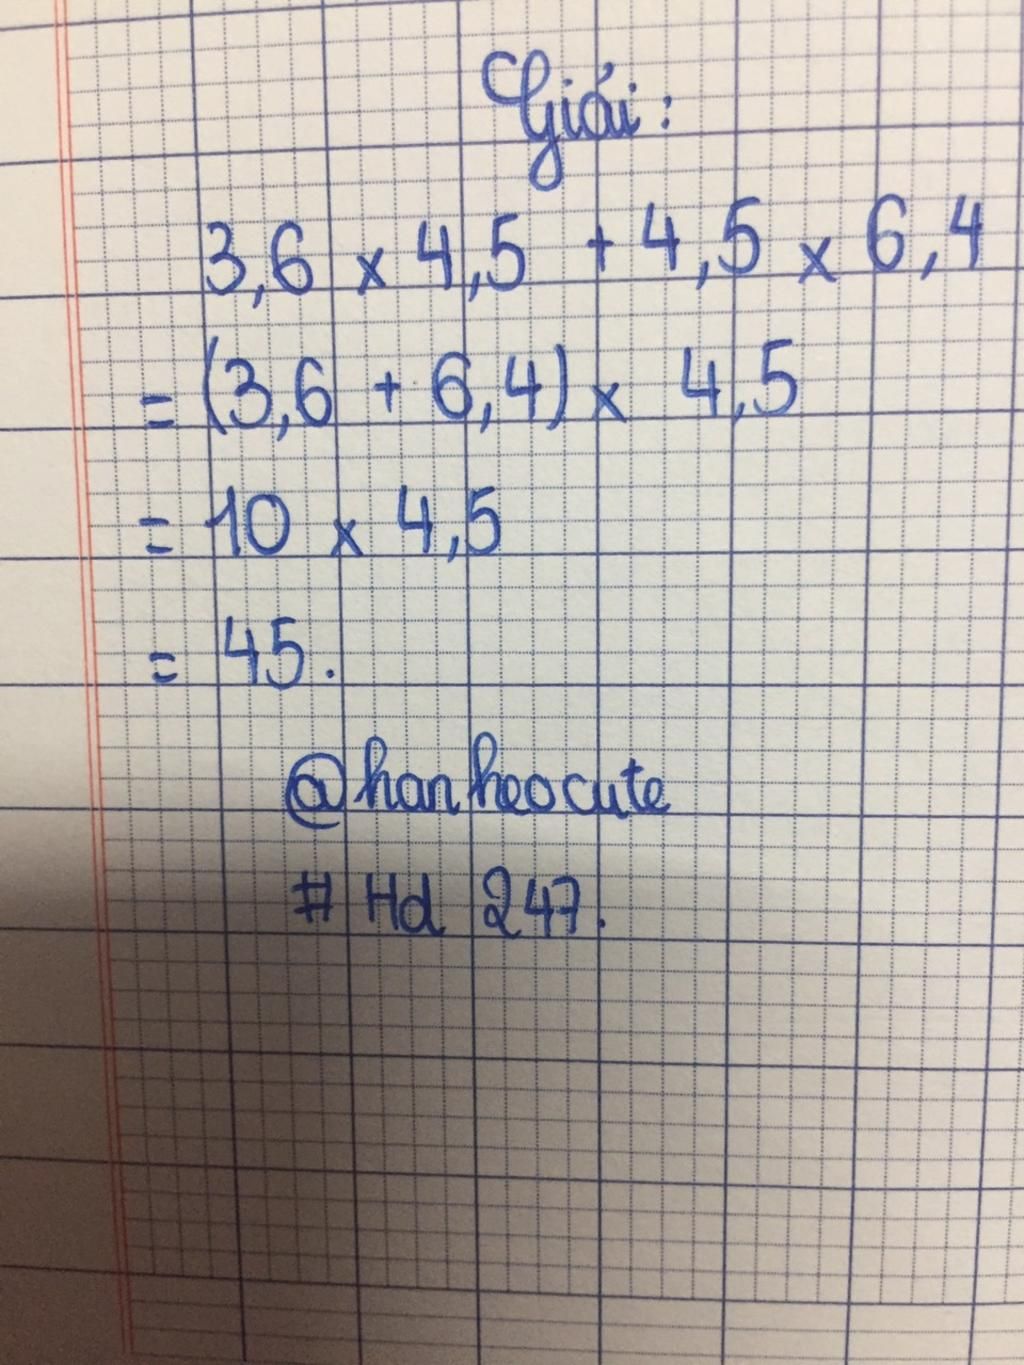 Giải:
3,6 x 4,5 + 4,5 x 6,4
= (3,6 + 6,4) x 4,5
= 10 x 4,5
= 45.
@hanheocute
# Hd 247.